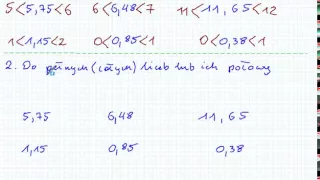 5<5,75<6 6<6,48<7 11<11,65<12
1<1,15<2 0<0,85<1 0<0,38<1
2. Do pełnym (całym) liczb lub ich połowy
5,75 6,48 11,65
1,15 0,85 0,38